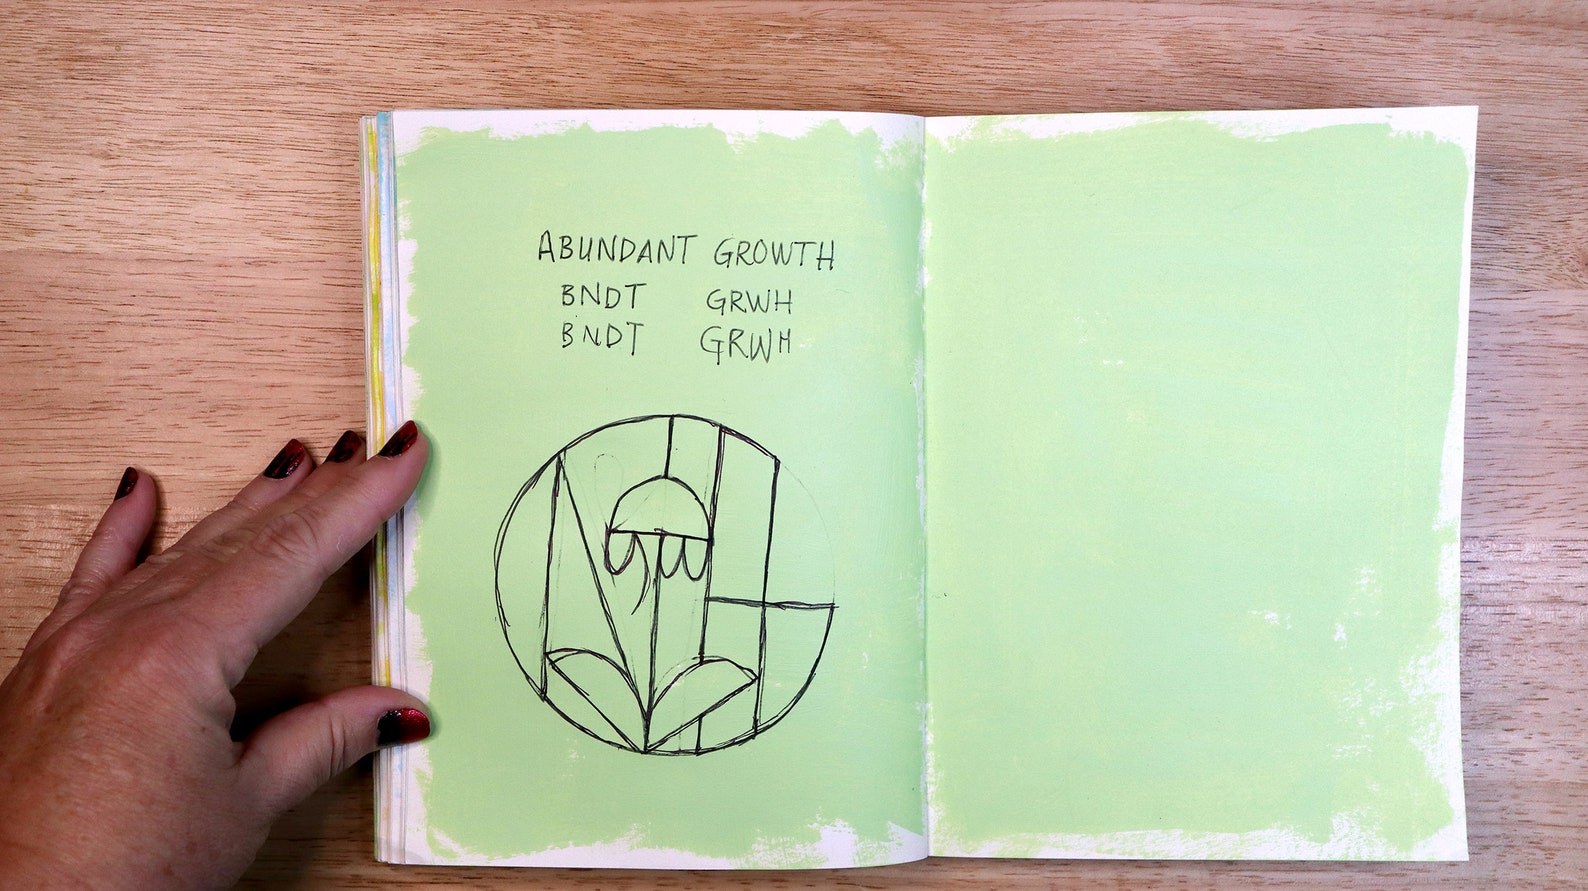 ABUNDANT GROWTH
BNDT GRWH
BNDT GRWH